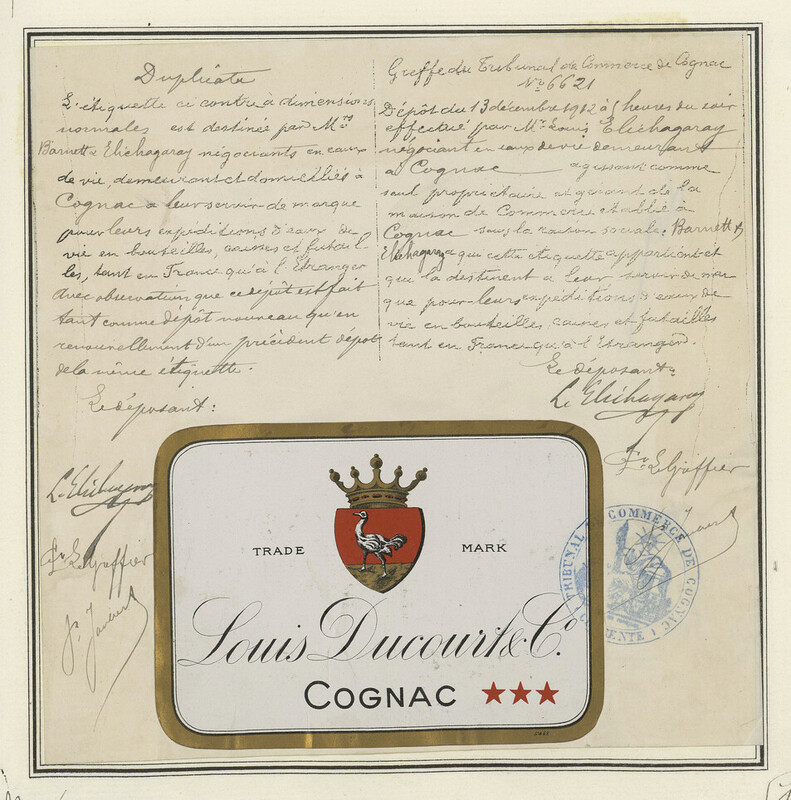 Duplicata
L'étiquette ci contre à dimensions
normales est destinée par Mrs
Barnett & Elichagaray négociants en eaux
de vie, demeurant et domiciliés à
Cognac a leur servir de marque
pour leurs expéditions d'eaux de
vie en bouteilles, caisses et futail-
les, tant en France qu'à l'Etranger
avec observation que ce dépôt est fait
tant comme dépôt nouveau qu'en
renouvellement d'un précédent dépôt
de la même étiquette.
Le déposant:
L. Elichagaray
Greffe du Tribunal de Commerce de Cognac
No 6621
Dépôt du 13 décembre 1912 à heures du soir
effectué par Mr Louis Elichagaray
négociant en eaux de vie demeurant
a Cognac agissant comme
seul propriétaire et gérant de la
maison de Commerce etablie à
Cognac sous la raison sociale: Barnett &
Elichagaray a qui cette étiquette appartient et
qui la destinent a leur servir de mar
que pour leurs expéditions d'eaux de
vie en bouteilles, caisses et futailles
tant en France qu'à l'Etranger.
Le déposant:
L. Elichagaray
TRADE MARK
Louis Ducourt & Co.
COGNAC ★★★
TRIBUNAL DE COMMERCE DE COGNAC